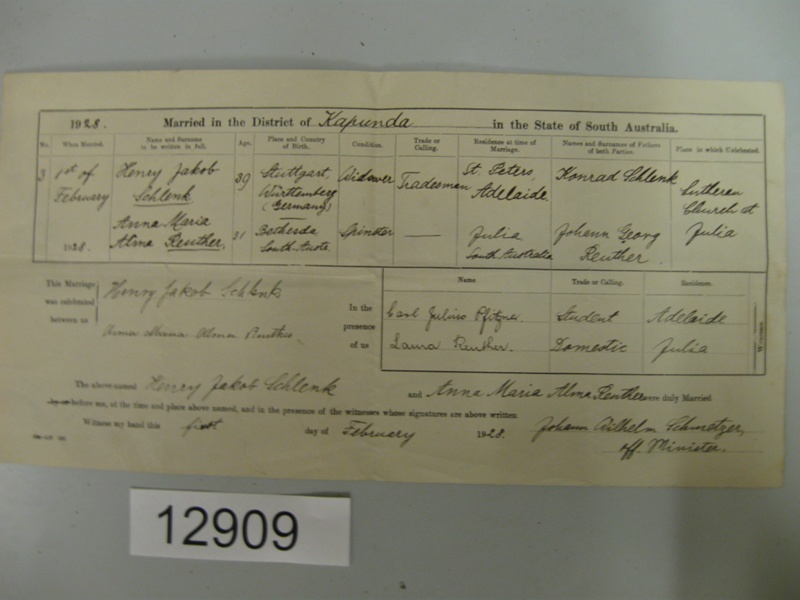 1928. Married in the District of Kapunda in the State of South Australia.
No. When Married. Name and Surname to be written in full. Age. Place and Country of Birth. Condition. Trade or Calling. Residence at time of Marriage. Names and Surnames of Fathers of both Parties. Place in which Celebrated.
3 1st of February 1928.
Henry Jakob Schlenk 39 Stuttgart, Württemberg (Germany) Widower Tradesman St. Peters, Adelaide Konrad Schlenk
Anna Maria Alma Reuther, 31 Bethesda South Austr. Spinster — Julia South Australia Johann Georg Reuther.
Lutheran Church at Julia
This Marriage was celebrated between us
Henry Jakob Schlenk
Anna Maria Alma Reuther.
In the presence of us
Name. Trade or Calling. Residence.
Carl Julius Pfitzner. Student Adelaide
Laura Reuther. Domestic Julia
Witnesses.
The above-named Henry Jakob Schlenk and Anna Maria Alma Reuther were duly Married
by or before me, at the time and place above named, and in the presence of the witnesses whose signatures are above written.
Witness my hand this first day of February 1928. Johann Wilhelm Schmetzer,
off. Minister.
12909